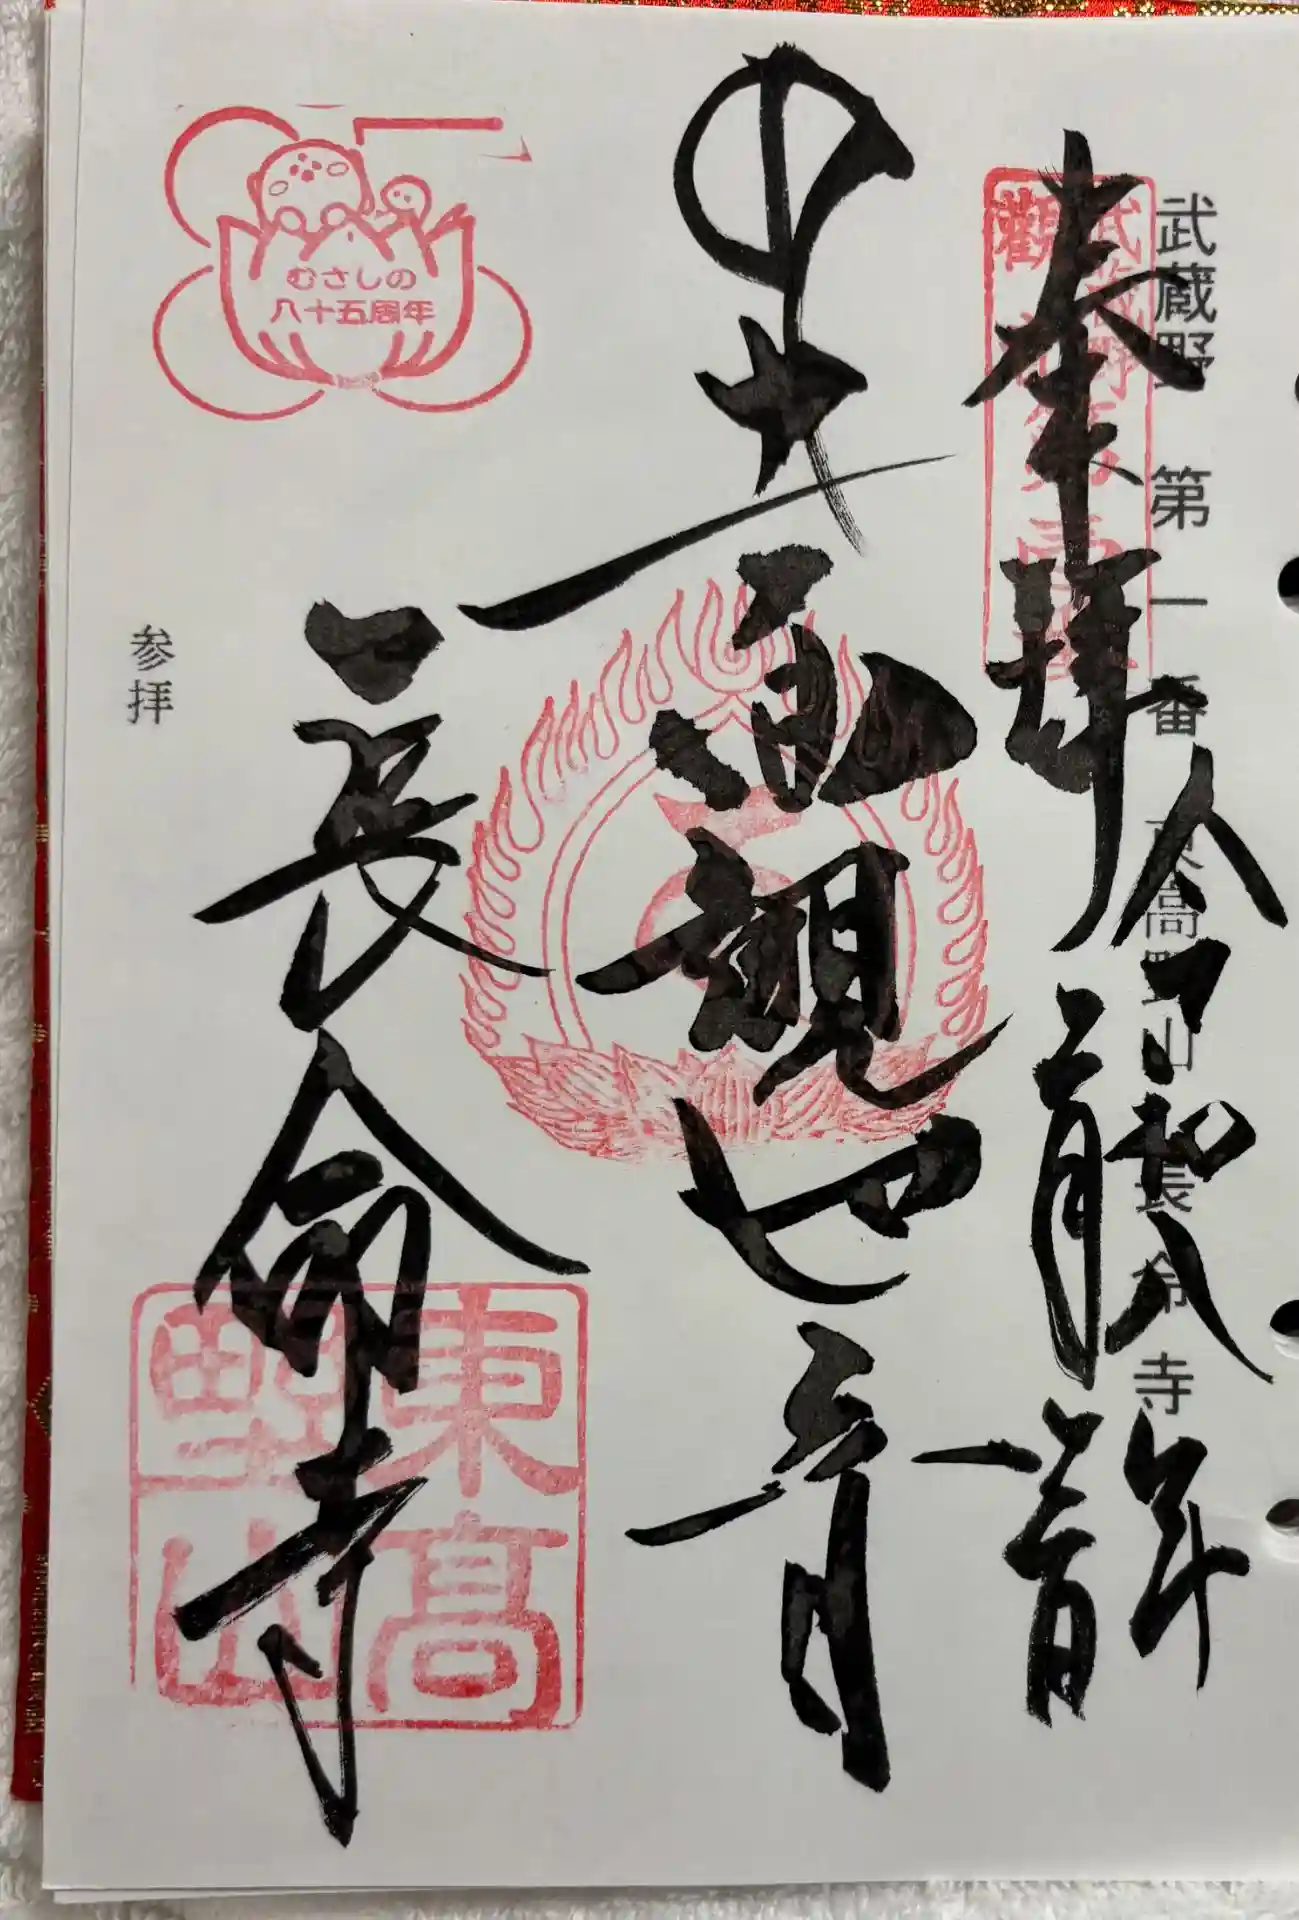 武蔵野 第一番 東高野山 長命寺
武蔵野
觀
奉拝
令和八年
一月一日
十一面観世音
長命寺
むさしの
八十五周年
東高
野山
参拝